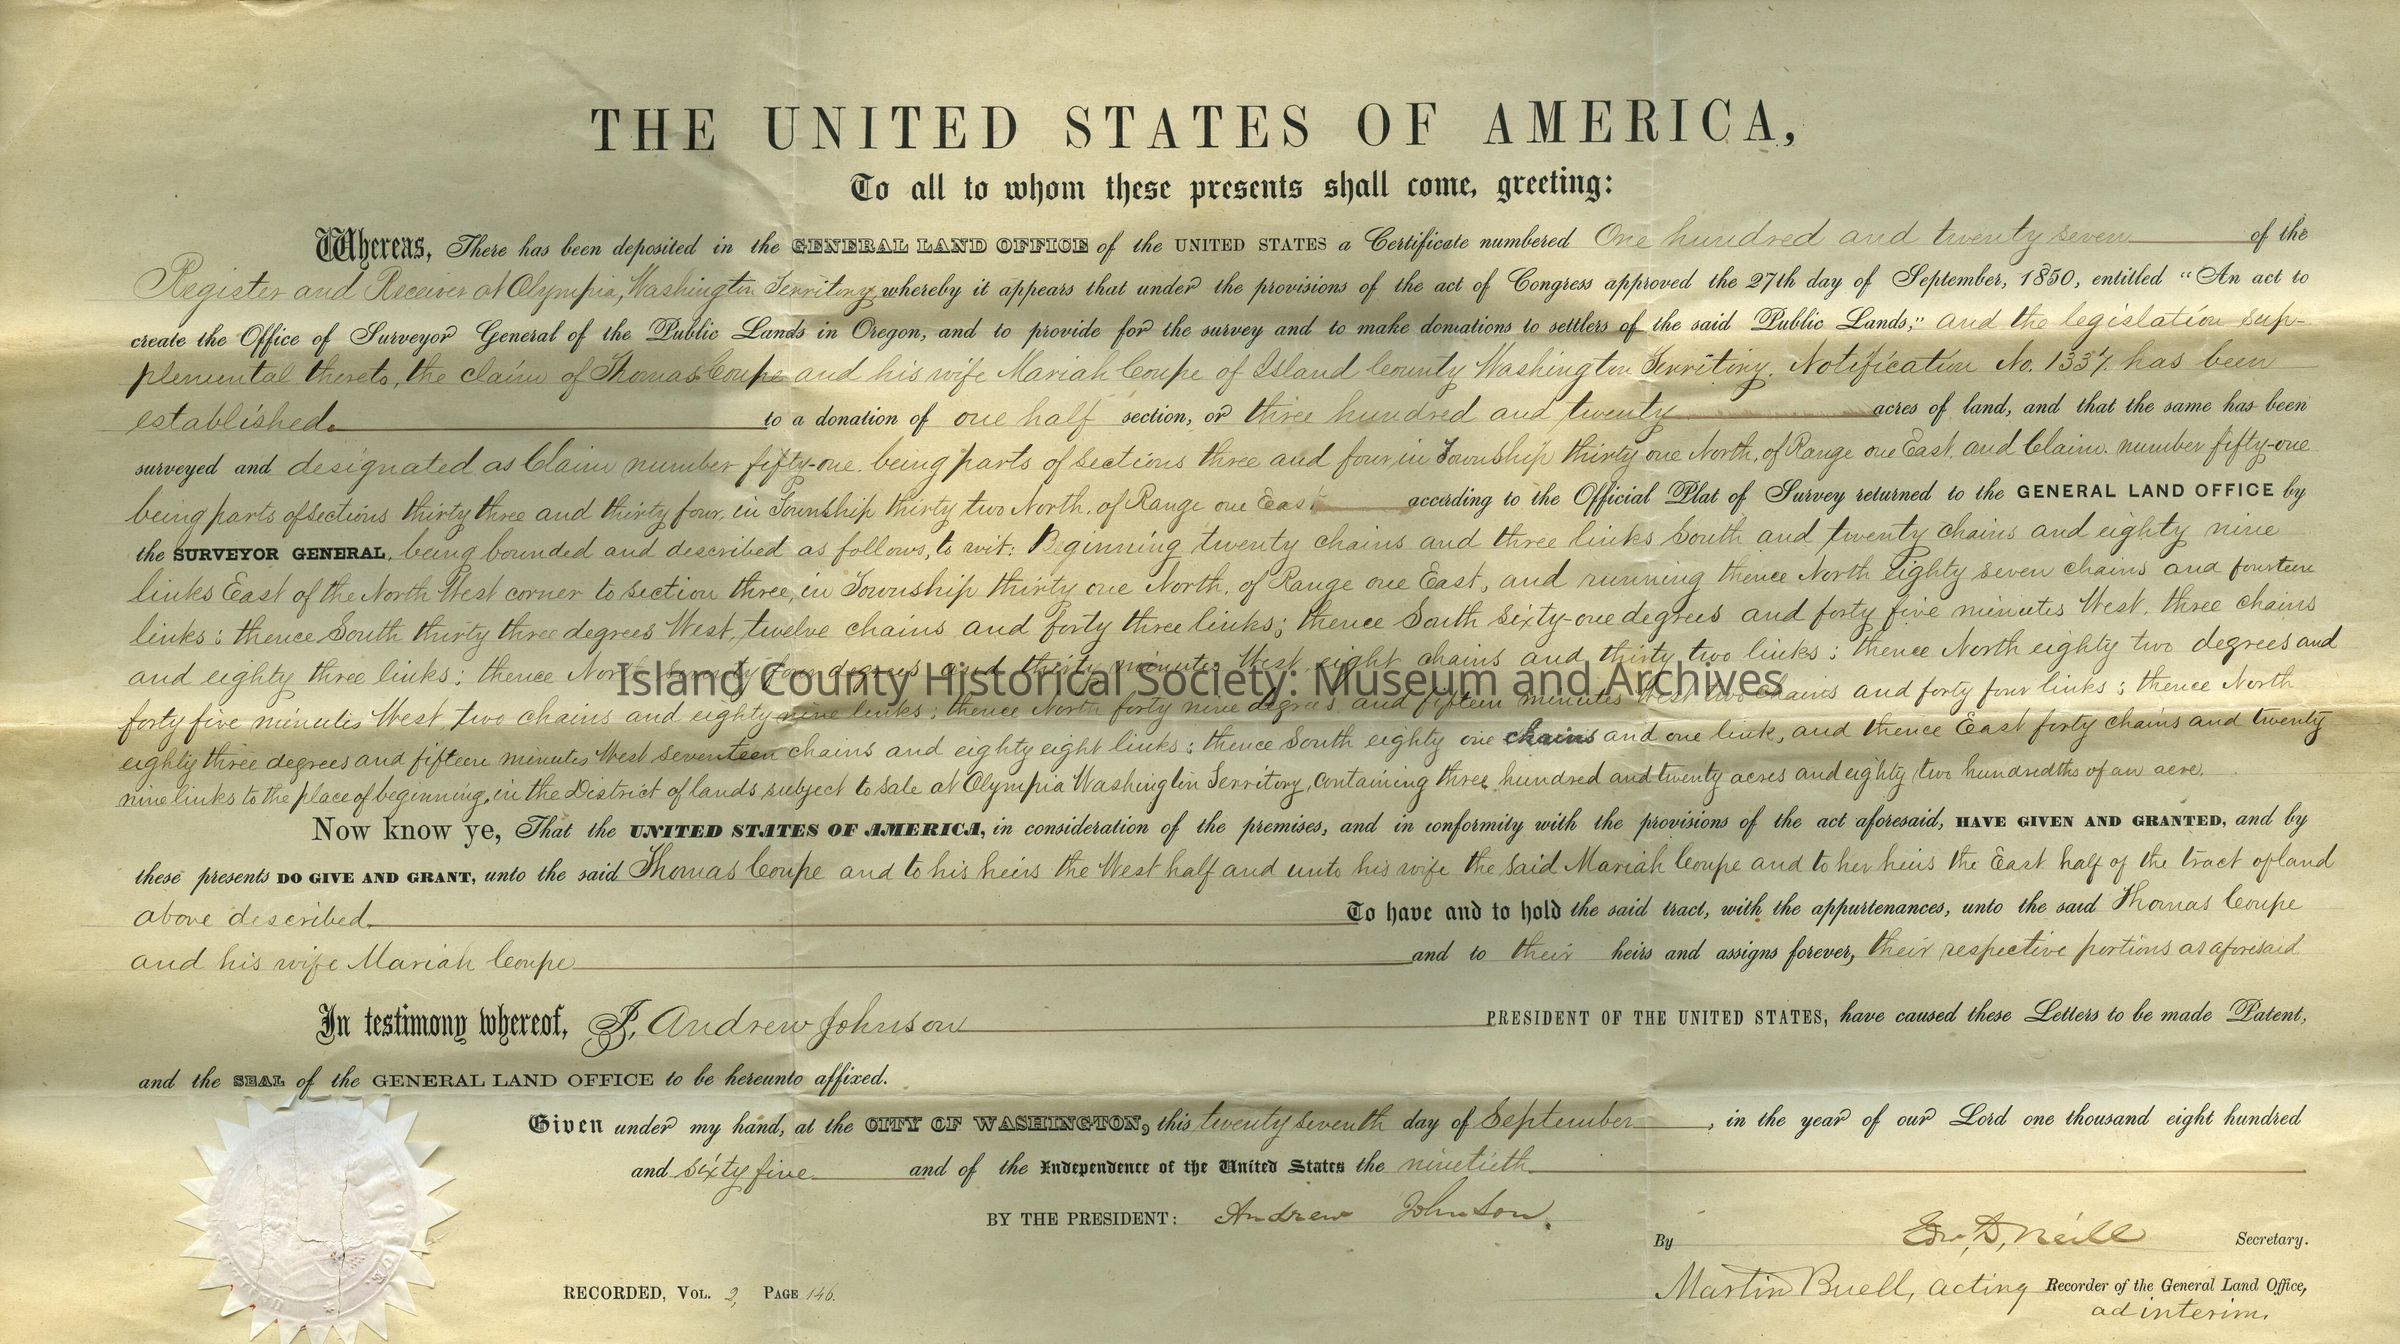 THE UNITED STATES OF AMERICA,
To all to whom these presents shall come, greeting:
Whereas, There has been deposited in the GENERAL LAND OFFICE of the UNITED STATES a Certificate numbered One hundred and twenty seven of the
Register and Receiver at Olympia, Washington Territory whereby it appears that under the provisions of the act of Congress approved the 27th day of September, 1850, entitled "An act to
create the Office of Surveyor General of the Public Lands in Oregon, and to provide for the survey and to make donations to settlers of the said Public Lands;" and the legislation sup-
plemental thereto, the claim of Thomas Coupe and his wife Mariah Coupe of Island County Washington Territory. Notification No. 1337. has been
established. to a donation of one half section, or three hundred and twenty acres of land, and that the same has been
surveyed and designated as Claim number fifty-one. being parts of sections three and four, in Township thirty one North, of Range one East, and Claim number fifty-one
being parts of sections thirty three and thirty four, in Township thirty two North, of Range one East according to the Official Plat of Survey returned to the GENERAL LAND OFFICE by
the SURVEYOR GENERAL, being bounded and described as follows, to wit: Beginning twenty chains and three links South and twenty chains and eighty nine
links East of the North West corner to section three, in Township thirty one North, of Range one East, and running thence North eighty seven chains and fourteen
links; thence South thirty three degrees West, twelve chains and forty three links; thence South sixty-one degrees and forty five minutes West, three chains
and eighty three links; thence North seventy four degrees and thirty minutes West, eight chains and thirty two links; thence North eighty two degrees and
Island County Historical Society: Museum and Archives
forty five minutes West, two chains and eighty nine links; thence North forty nine degrees and fifteen minutes West two chains and forty four links; thence North
eighty three degrees and fifteen minutes West seventeen chains and eighty eight links; thence South eighty one chains and one link, and thence East forty chains and twenty
nine links to the place of beginning, in the District of lands subject to sale at Olympia Washington Territory, containing three hundred and twenty acres and eighty two hundredths of an acre.
Now know ye, That the UNITED STATES OF AMERICA, in consideration of the premises, and in conformity with the provisions of the act aforesaid, HAVE GIVEN AND GRANTED, and by
these presents DO GIVE AND GRANT, unto the said Thomas Coupe and to his heirs the West half and unto his wife the said Mariah Coupe and to her heirs the East half of the tract of land
above described. To have and to hold the said tract, with the appurtenances, unto the said Thomas Coupe
and his wife Mariah Coupe and to their heirs and assigns forever, their respective portions as aforesaid.
In testimony whereof, I, Andrew Johnson PRESIDENT OF THE UNITED STATES, have caused these Letters to be made Patent,
and the SEAL of the GENERAL LAND OFFICE to be hereunto affixed.
Given under my hand, at the CITY OF WASHINGTON, this twenty seventh day of September, in the year of our Lord one thousand eight hundred
and sixty five and of the Independence of the United States the ninetieth.
BY THE PRESIDENT: Andrew Johnson.
By Edw, D, Neill Secretary.
RECORDED, VOL. 2, PAGE 146.
Martin Buell, acting Recorder of the General Land Office,
ad interim.